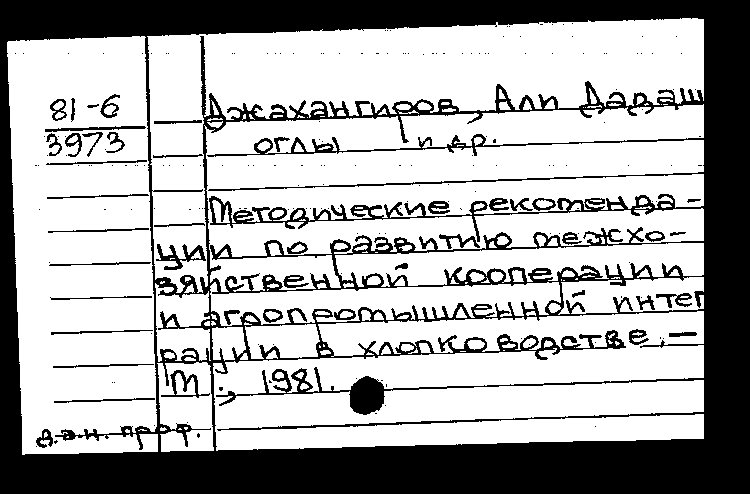 81-6
3973
Джахангиров, Али Дадаш
оглы и др.
Методические рекоменда-
ции по развитию межхо-
зяйственной кооперации
и агропромышленной интег
рации в хлопководстве. —
М., 1981.
д.э.н. проф.